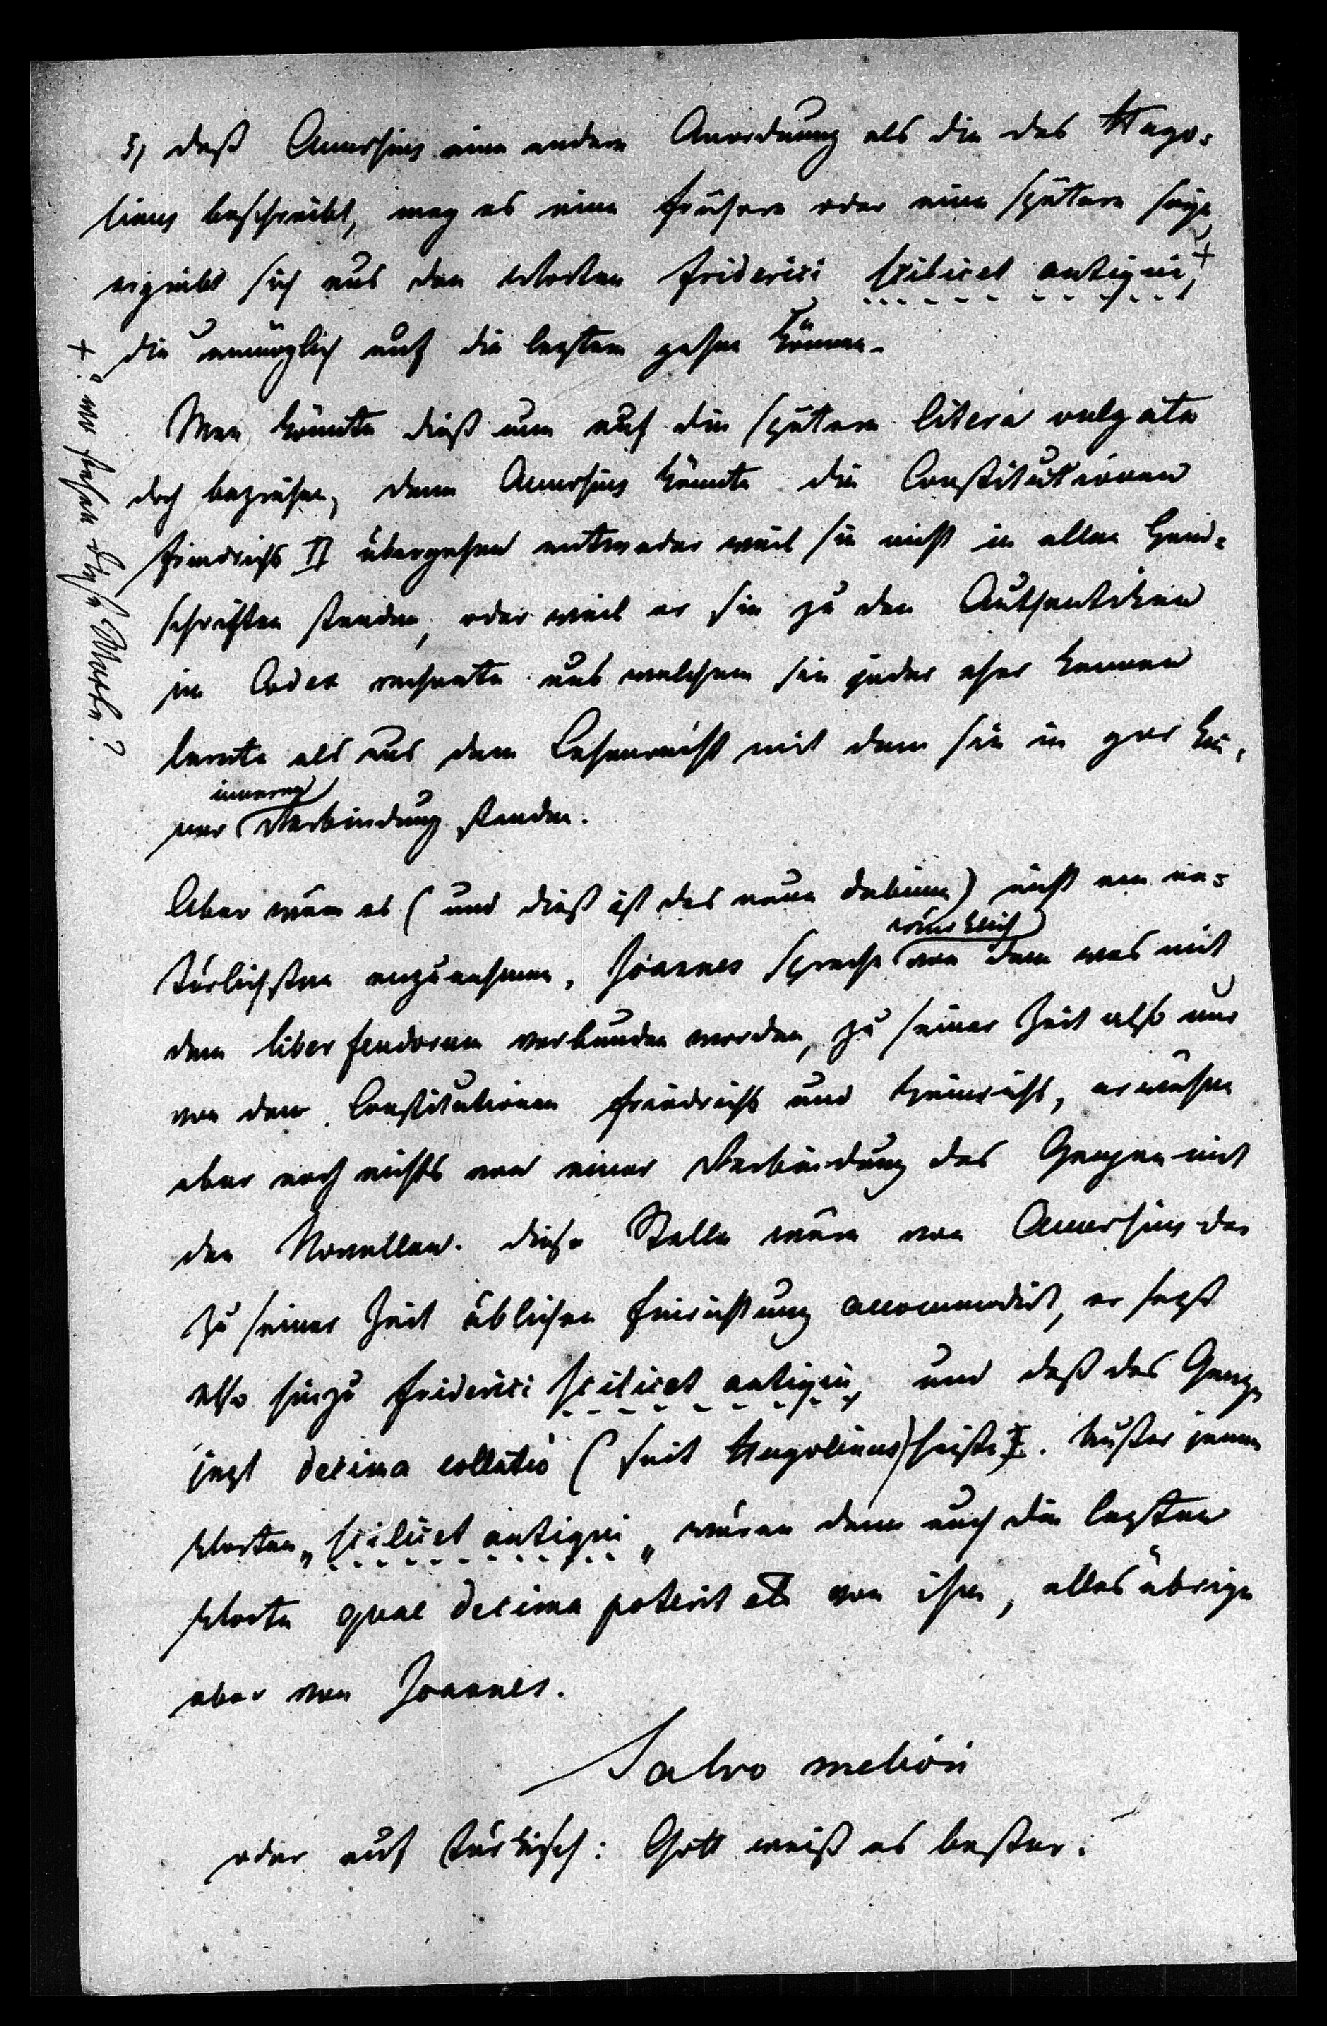 3, daß Accursius eine andere Anordnung als die des Hugo-
linus beschreibt, mag es eine frühere oder eine spätere seyn
ergiebt sich aus den Worten Friderici scilicet antiqui, +
die unmöglich auf die letztern gehen können.
+: wo stehen diese Worte?
Man könnte dieß nun auf die spätere litera vulgata
doch beziehen, denn Accursius könnte die Constitutionen
Friedrichs II übergehen entweder weil sie nicht in allen Hand-
schriften standen, oder weil er sie zu den Authentiken
im Codex rechnete aus welchem sie jeder eher kennen
lernte als aus dem Lehenrecht mit dem sie in gar kei-
ner inneren Verbindung standen.
Aber wäre es (und dieß ist das neue dubium) nicht am na-
türlichsten anzunehmen, Joannes spreche würklich von dem was mit
dem liber feudorum verbunden worden, zu seiner Zeit also nur
von den Constitutionen Friedrichs und Heinrichs, erwähne
aber noch nichts von einer Verbindung des Ganzen mit
den Novellen. Diese Stelle wäre von Accursius der
zu seiner Zeit üblichen Einrichtung accommodirt, er setzt
also hinzu Friderici scilicet antiqui, und daß das Ganze
jezt decima collatio (seit Hugolinus) heiße. Außer jenen
Worten „scilicet antiqui„ wären denn auch die letzten
Worte quae decima poterit von ihm, alles übrige
aber von Joannes.
Salvo meliori
oder auf türkisch: Gott weiß es besser.